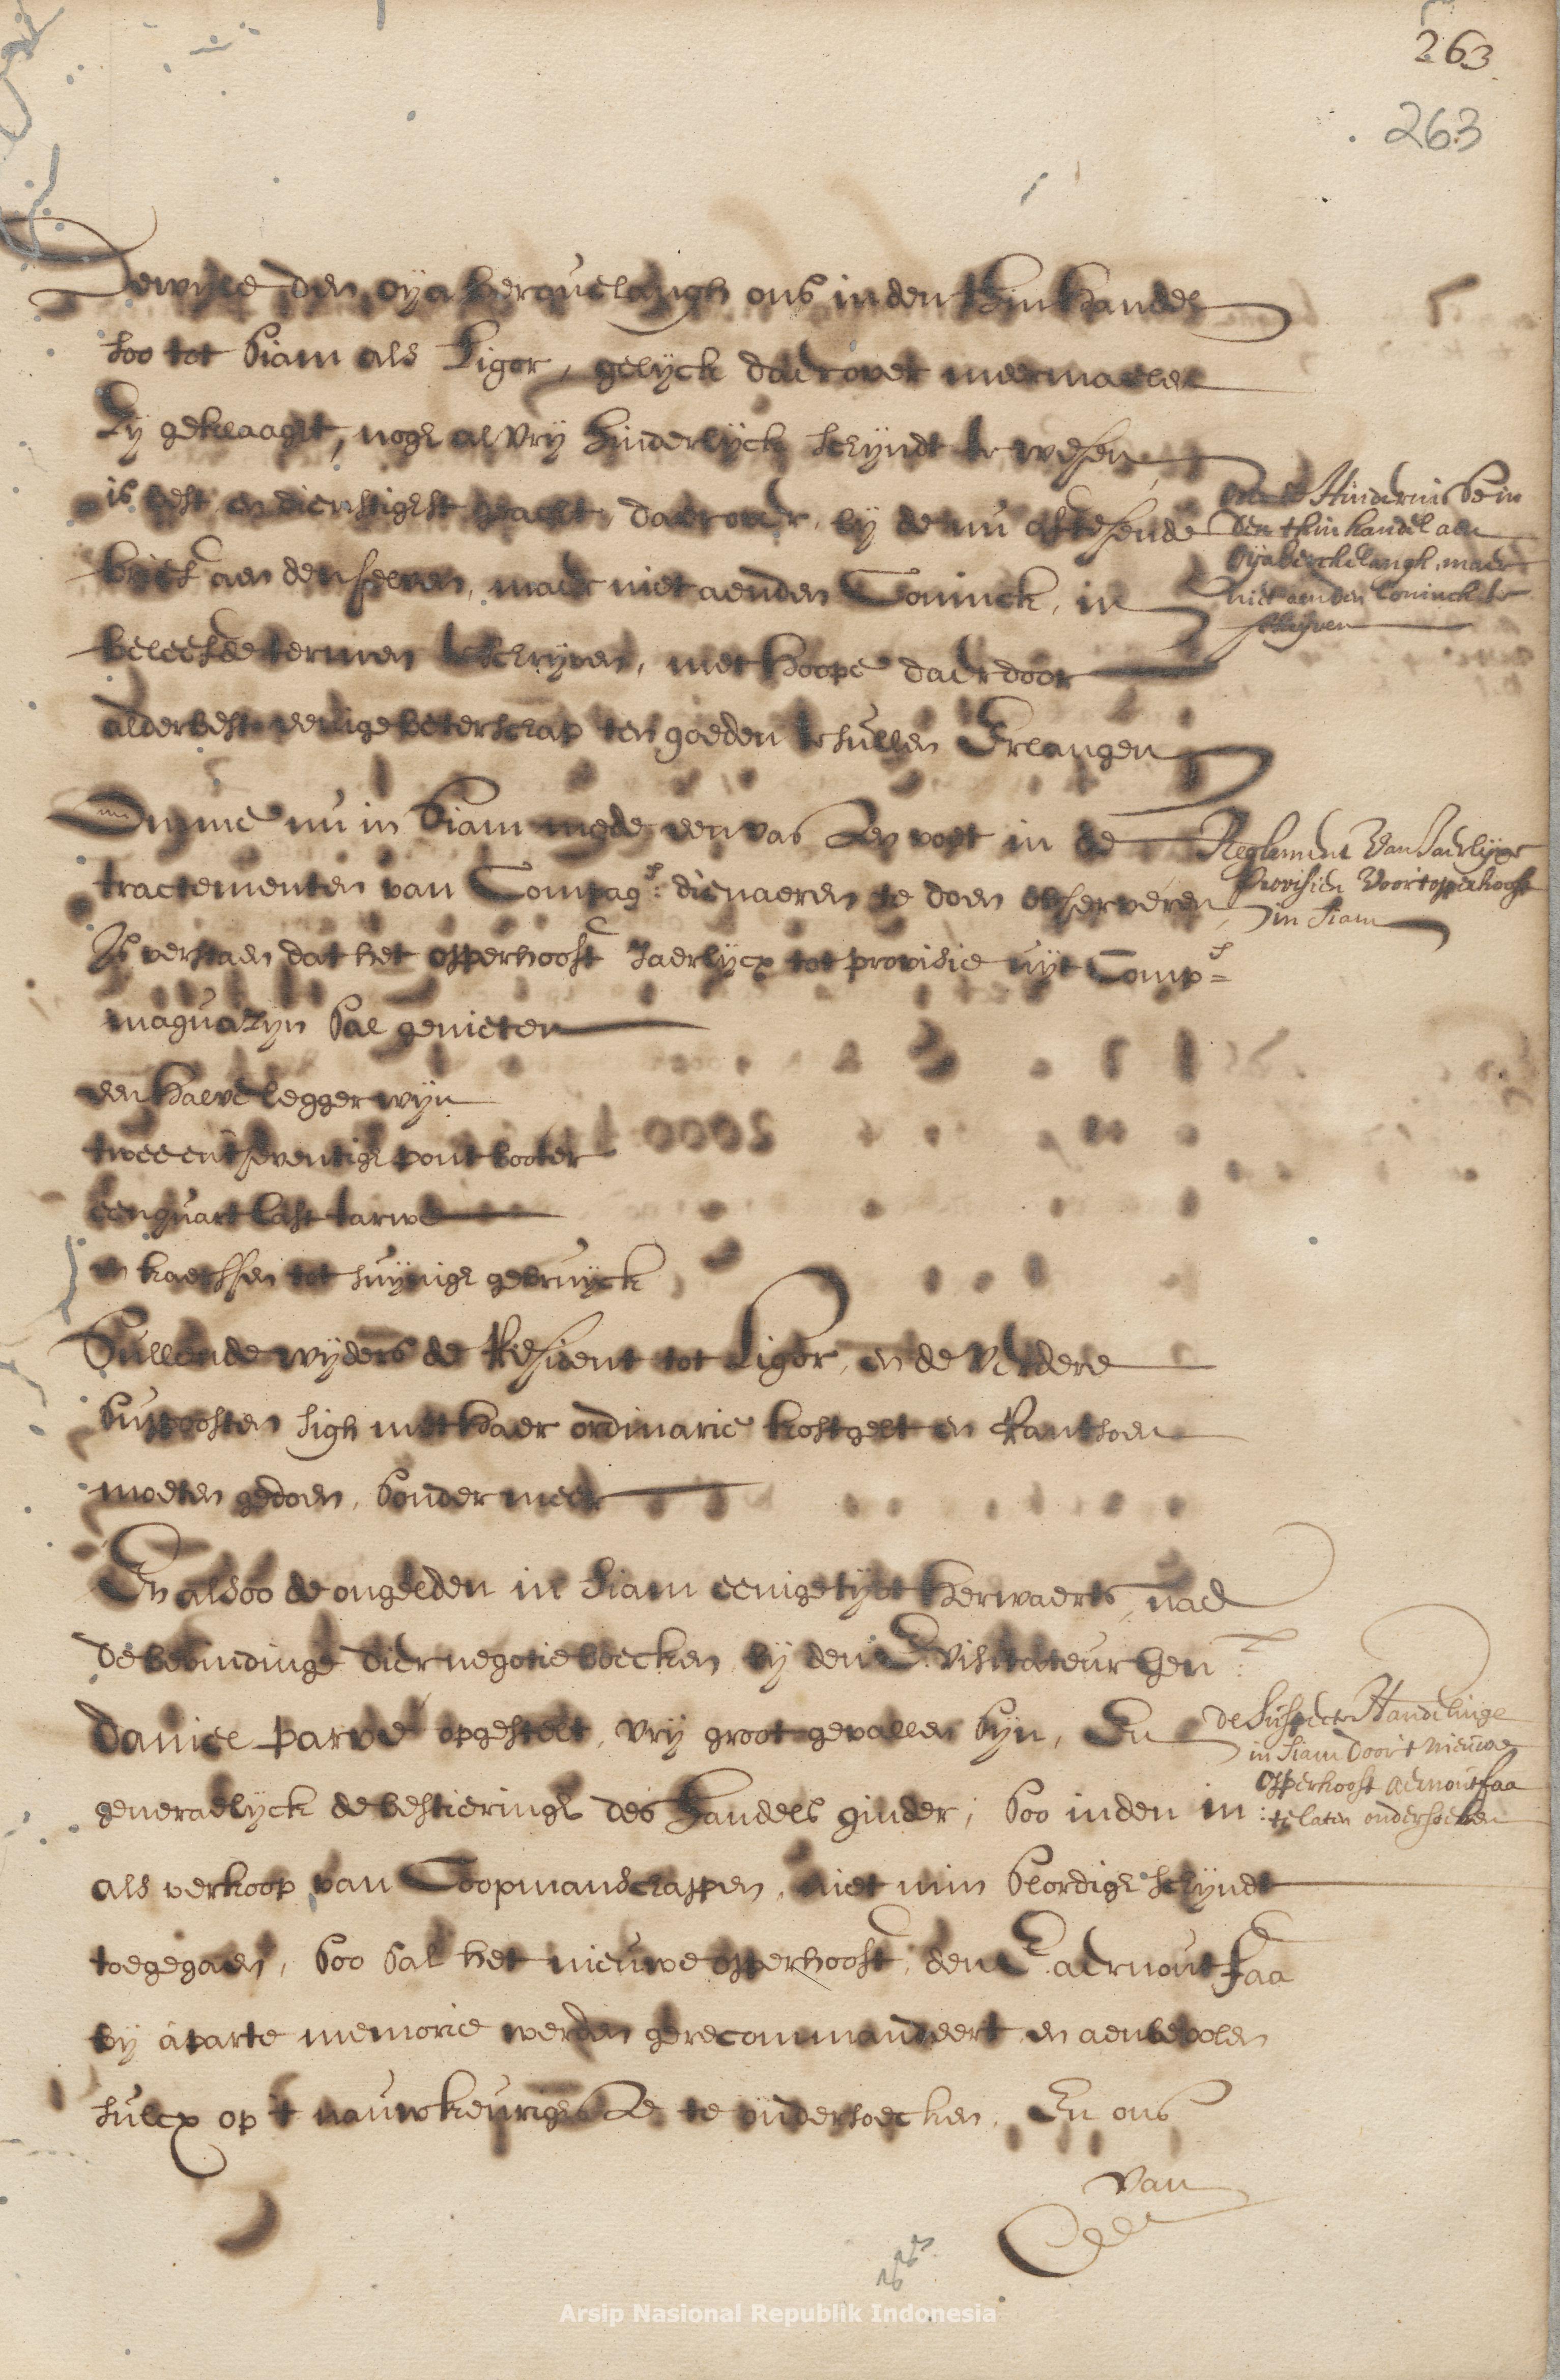 263
263
Dewyle den oya berquelangh ons inden thin handel
soo tot Siam als Ligor, gelyck daerover meermaelen
Sy geklaaght, nogh al vry hinderlyck schyndt te wesen
is best en dienstighst geacht, daerover, by de nu aftesende
brief aen denselven, maer niet aenden Coninck, in
beleefde termen te schryven, met hoope daerdoor
alderbest eenige beterschap ten goeden te sullen Erlangen
Hindernisse in
den thinhandel aen
Oija berckelangh, maer
niet aen den Coninck te
schryven
Omme nu in Siam mede een vas ... voet in de
tractementen van Compag:s dienaeren te doen observeren,
Is verstaen dat het opperhooft Jaerlycx tot provisie uyt Comp=s
maguazyn sal genieten
Reglement van Jaerlyxe
Provisien voor t opperhooft
in Siam
een halve legger wyn
twee en tseventigh pont boter
een quart last tarwe
en kaerssen tot suynigh gebruyck
Sullende wyders de Resident tot Ligor, en de verdere
Suppoosten sigh met haer ordinarie kostgelt en Rantsoen
moeten gedoen, sonder meer
En alsoo de ongelden in Siam eenige tyt herwaerts, nae
de bevindinge dier negotie boecken by den E. Visitateur Gen:l
Daniel Parvé opgestelt, vry groot gevallen syn, En
generaelyck de bestieringh des handels ginder, soo inden in:
als verkoop van Coopmanschappen, niet min slordigh schyndt
toegegaen, soo sal het nieuwe opperhooft, den E. aernout faa
by aparte memorie werden gerecommandeert en aenbevolen
sulcx op 't nauwkeurighste te ondersoecken, En ons
de suspecte Handelinge
in Siam door 't nieuwe
opperhooft aernout faa
te laten ondersoecken
van
Arsip Nasional Republik Indonesia